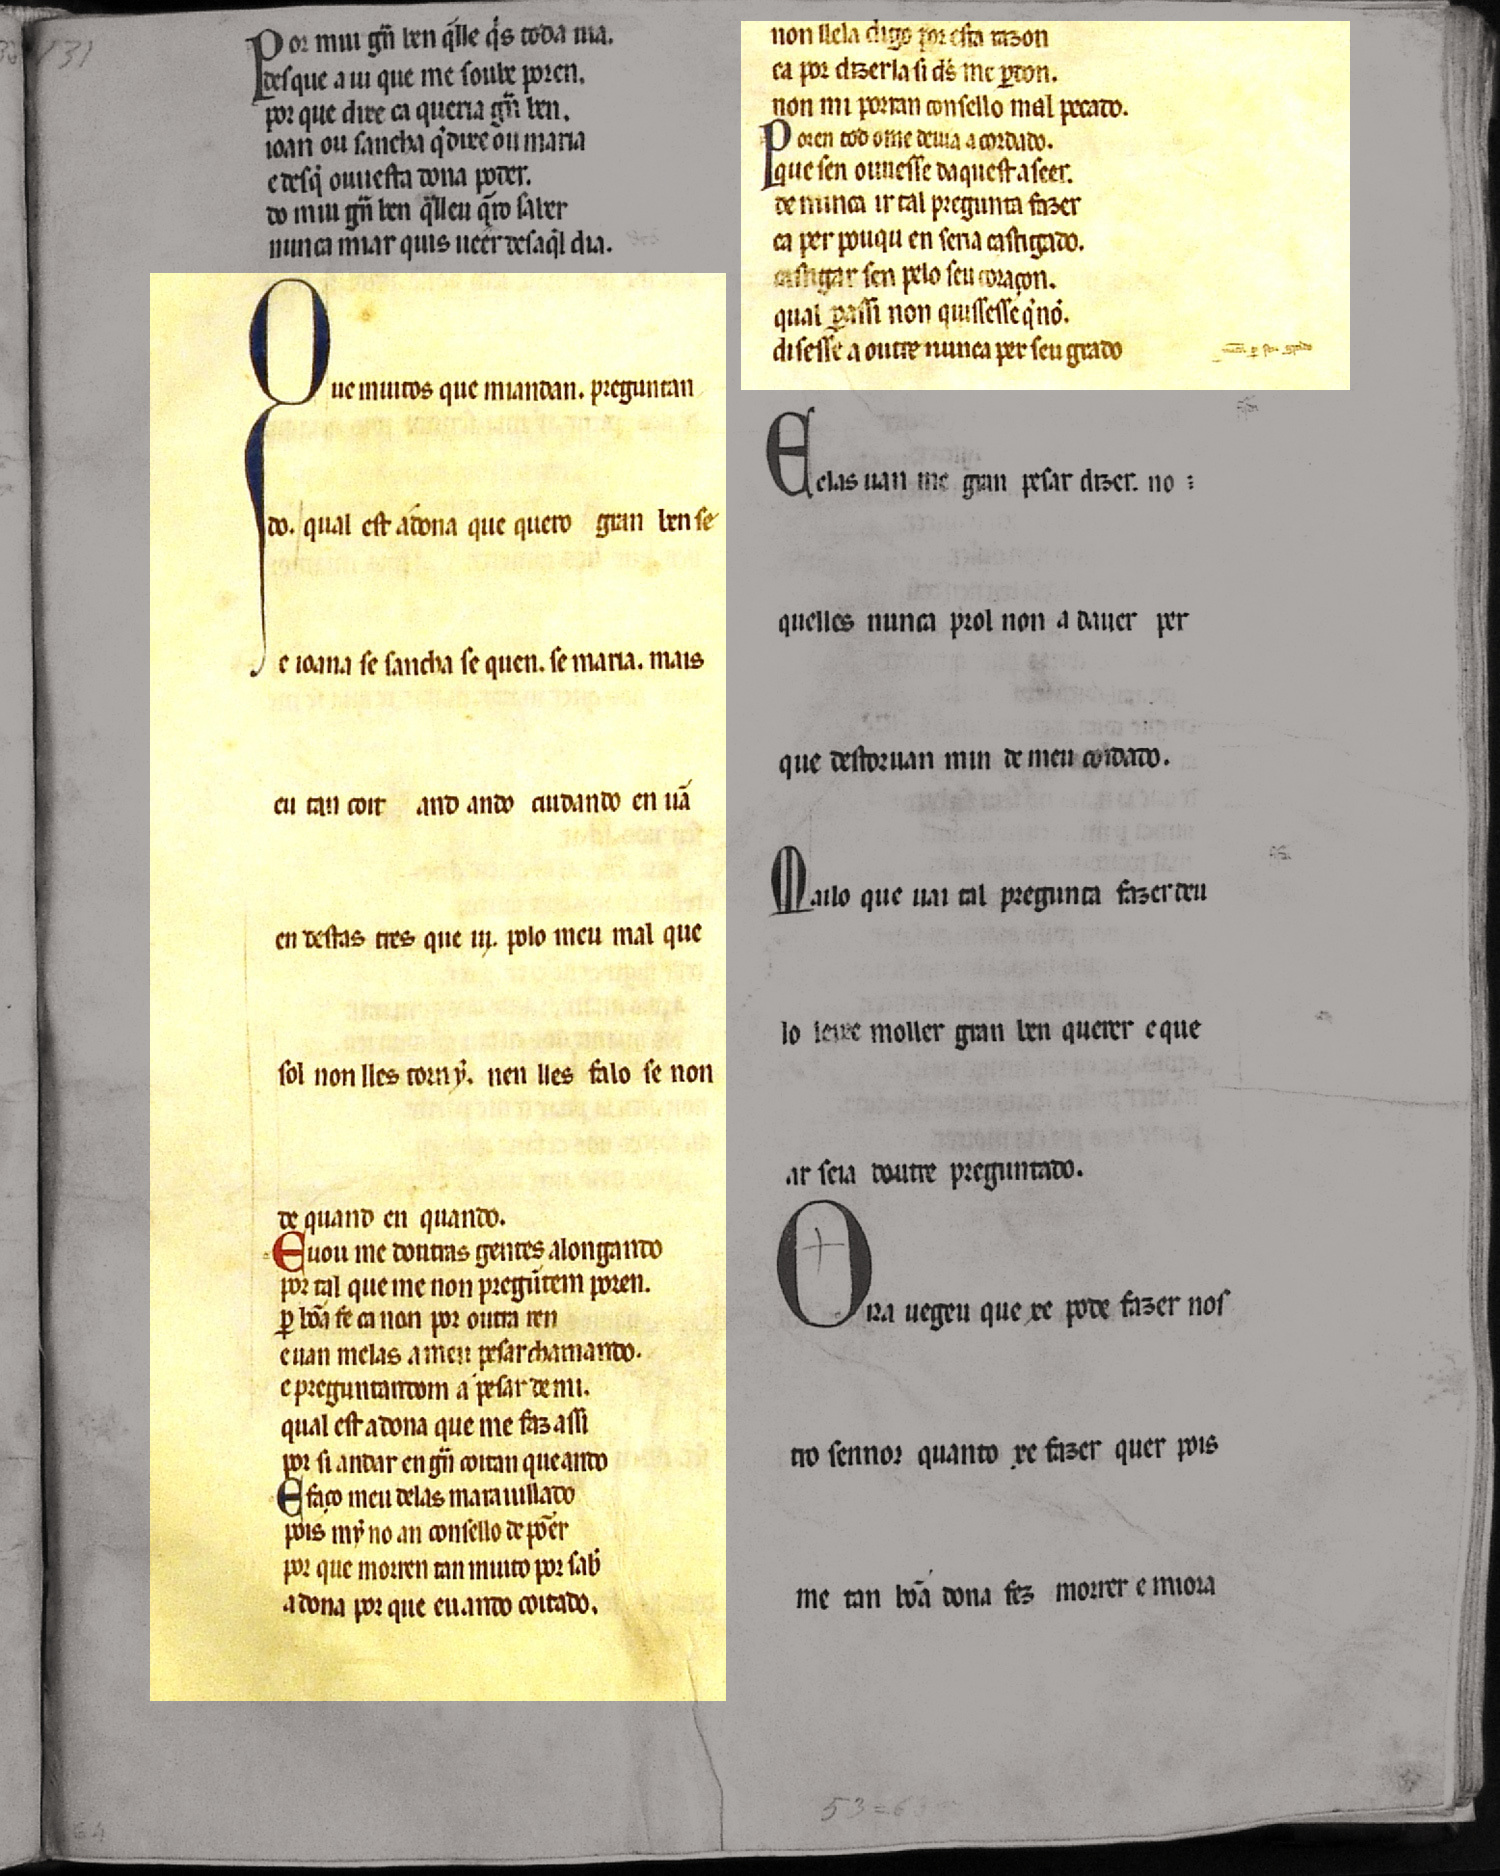 131
Por miu gñ ben q̃lle q̇s toda uia.
desque a ui que me soube poren.
por que dire ca queria gñ ben.
ioan ou sancha q̇ dire ou maria
e desq̃ ouuesta dona poder.
do miu gñ ben q̃lleu q̃ro saber
nunca miar quis ueer desaq̃l dia.
Oue muitos que miandan. preguntan
do. qual est adona que quero gran ben se
e ioana se sancha se quen. se maria. mais
eu tan coit and ando cuidando en uã
en destas tres que ui. polo meu mal que
sol non lles torn ẏ. nen lles falo se non
de quand en quando.
E uou me doutras gentes alongando
por tal que me non pregũtem poren.
ꝑ bõa fe ca non por outra ren
e uan melas a meu pesar chamando.
e preguntandom a pesar de mi.
qual est adona que me faz assi
por si andar en gñ coitan que ando
E faço meu delas marauillado
pois mẏ no an consello de põer
por que morren tan muito por sab̃
a dona por que eu ando coitado.
non llela digo por esta razon
ca por dizerla si d̃s me ꝑdon.
non mi porran consello mal pecado.
Poren tod ome deuia acordado.
que sen ouuesse daquest a seer.
de nunca ir tal pregunta fazer
ca per pouqu en seria castigado.
castigar sen pelo seu coraçon.
qual ꝑassi non quisesse q̇ nõ.
disesse a outre nunca per seu grado
E elas uan me gran pesar dizer. no
quelles nunca prol non a dauer per
que destoruan min de meu coidado.
Mailo que uai tal pregunta fazer deu
lo leixe moller gran ben querer e que
ar seia doutre preguntado.
Ora uegeu que xe pode fazer nos
tro sennor quanto xe fazer quer pois
me tan bõa dona fez morrer e miora
53=63
64